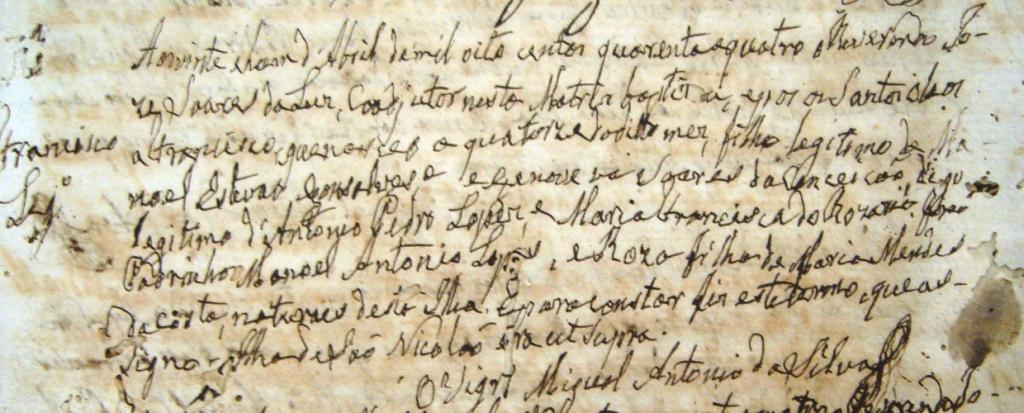 Aos vinte e hum d'Abril de mil oito centos quarenta e quatro o Reverendo Jo-
ze Soares da Luz, Coadjutor nesta Matriz baptizou, e pos os Santos oleos
Francisco
a Francisco, que nasceo a quatorze do dito mez, filho legitimo de Ma-
Leg.º
noel Estevão Gonsalves, e Genoveva Soares da Conceição,
legitimo d'Antonio Pedro Lopes, e Maria Francisca do Rozario, forão
Padrinhos Manoel Antonio Lopes, e Roza filha de Maria Mendes
da Costa, naturaes desta Ilha. E para constar fiz este termo, que as-
signo. Ilha de São Nicoláo era ut supra.
O Vigrº Miguel Antonio da Silva